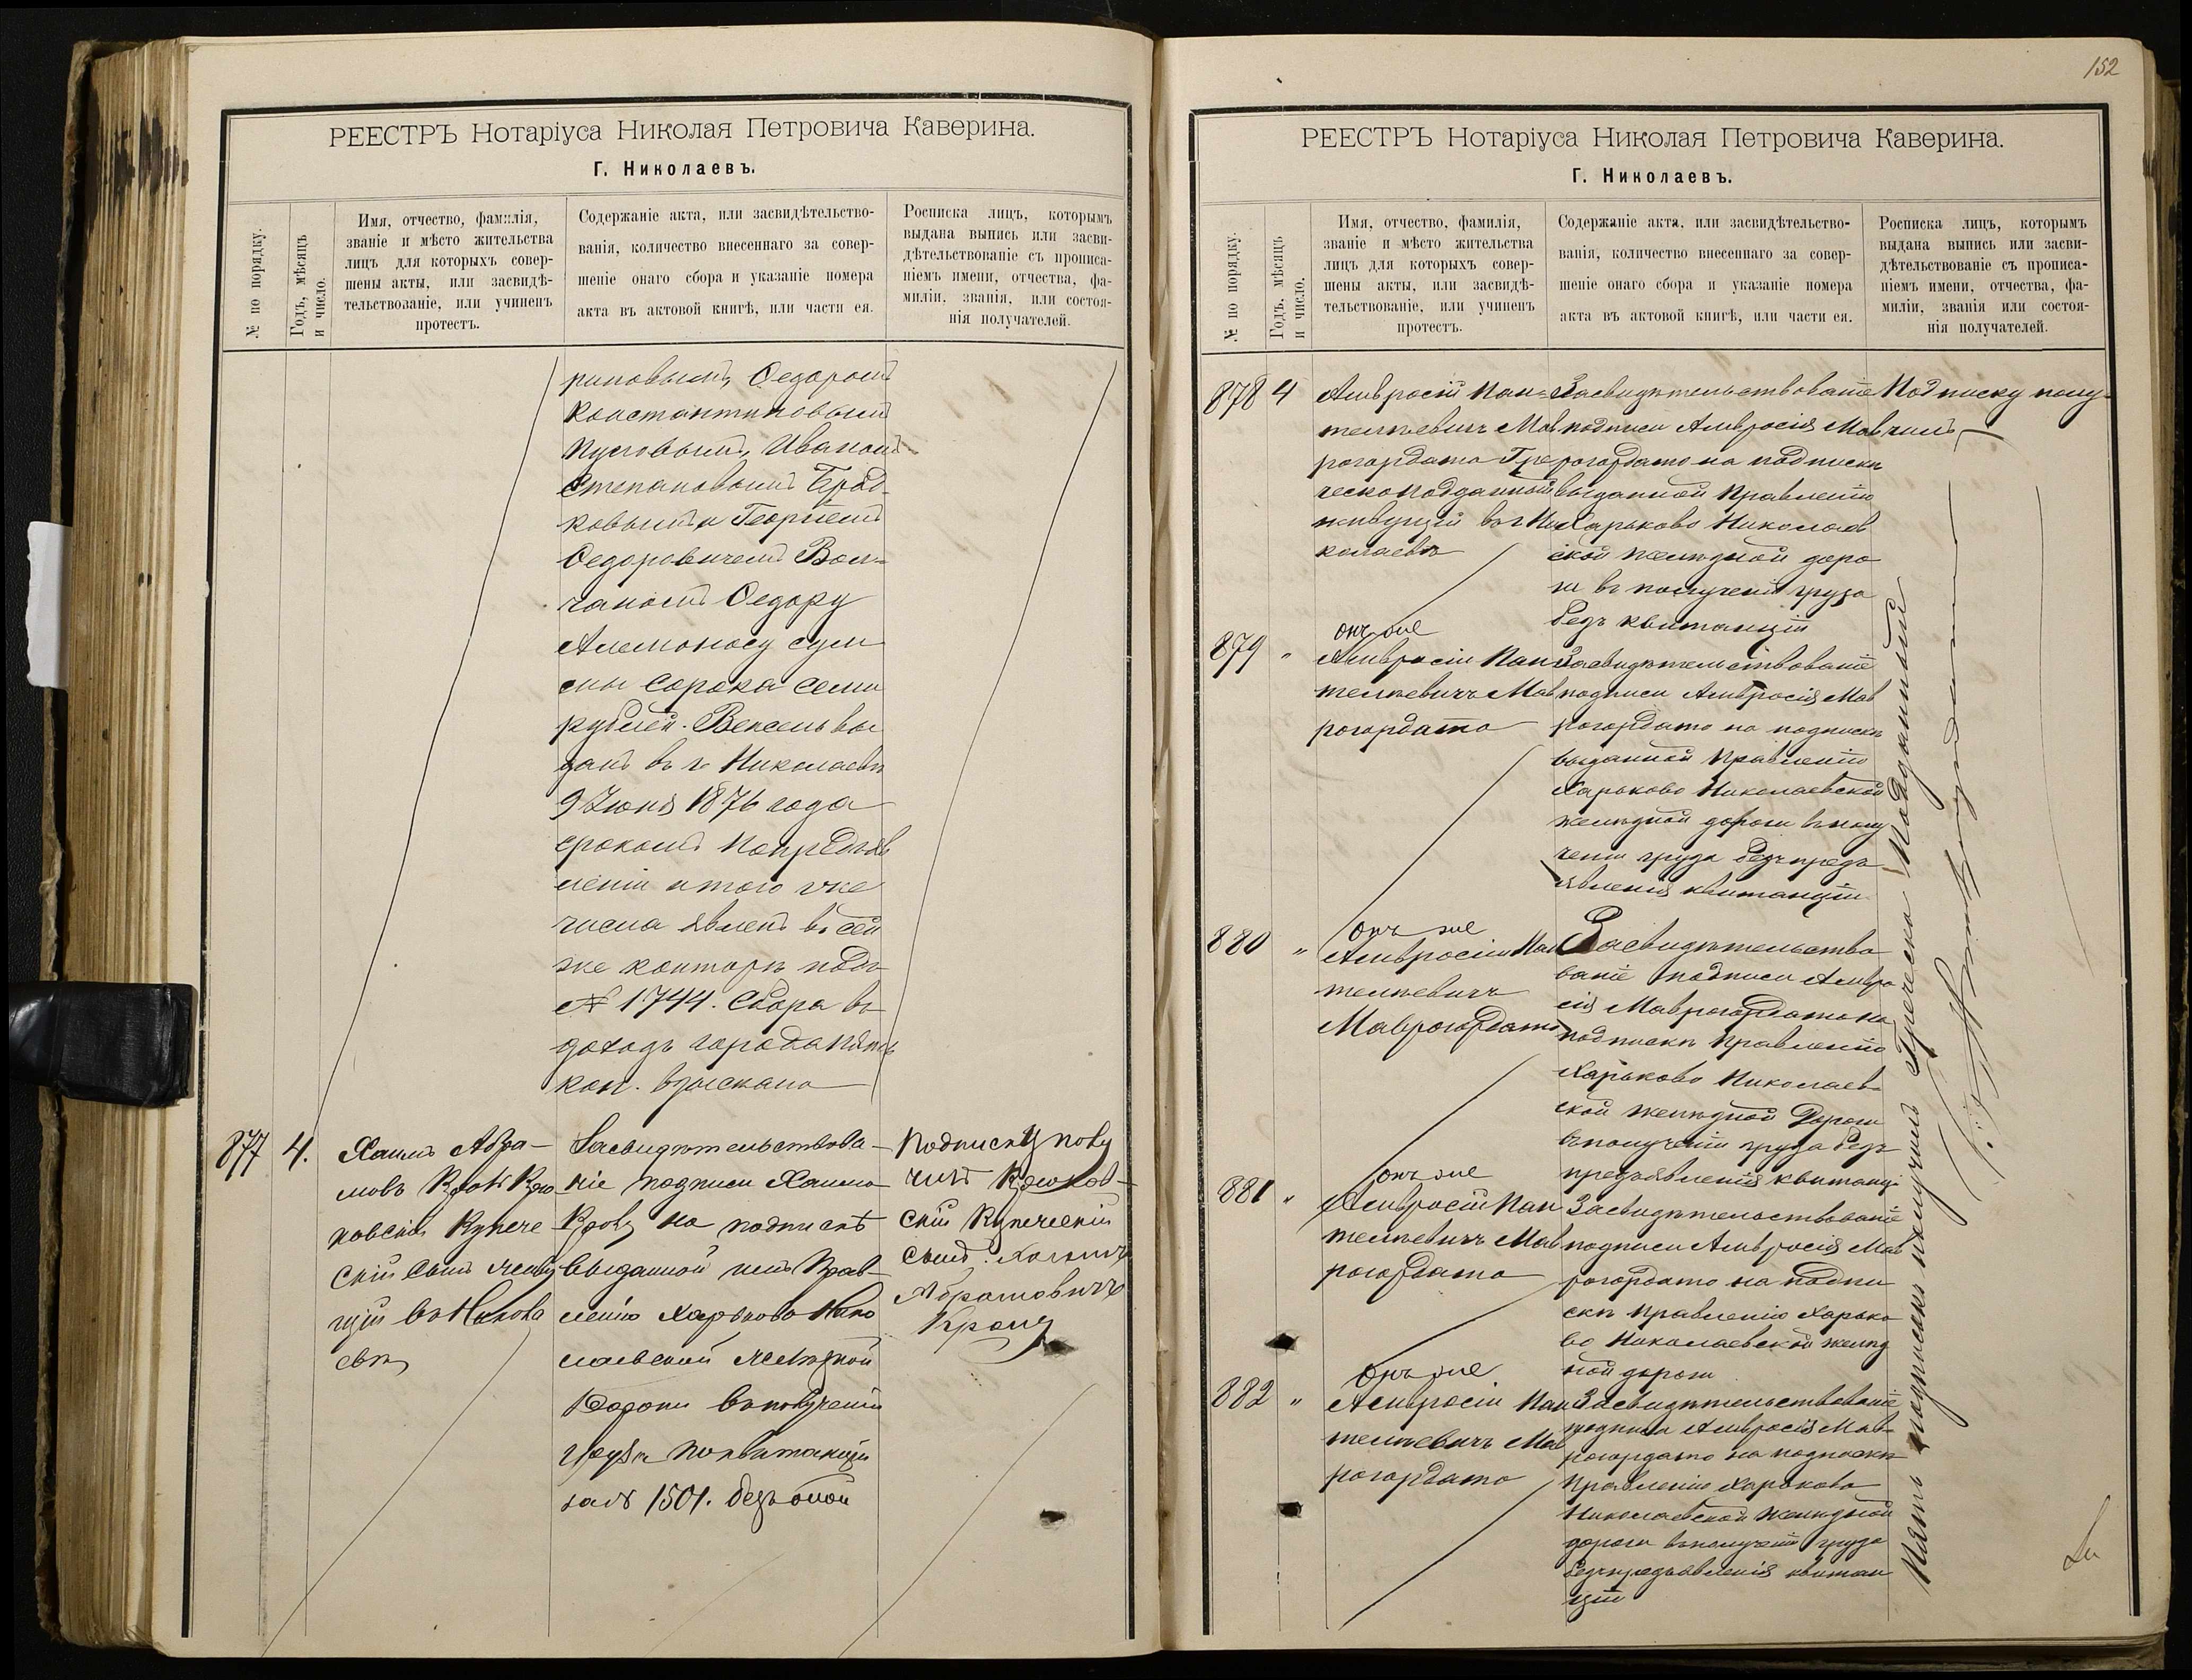 РЕЕСТРЪ Нотаріуса Николая Петровича Каверина.
Г. Николаевъ.
№ по порядку.
Годъ, мѣсяцъ
и число.
Имя, отчество, фамилія,
званіе и мѣсто жительства
лицъ для которыхъ совер-
шены акты, или засвидѣ-
тельствованіе, или учиненъ
протестъ.
Содержаніе акта, или засвидѣтельство-
ванія, количество внесеннаго за совер-
шеніе онаго сбора и указаніе номера
акта въ актовой книгѣ, или части ея.
Росписка лицъ, которымъ
выдана выпись или засви-
дѣтельствованіе съ прописа-
ніемъ имени, отчества, фа-
миліи, званія, или состоя-
нія получателей.
Ѳедоромъ
Константиновымъ
Иваномъ
Степановымъ
и Георгіемъ
Ѳедоровичемъ
Ѳедору
сум
мы сорока семи
рублей. Вексель вы
данъ въ г. Николаевѣ
9 Іюня 1876 года
срокомъ по предъяв
леніи и того же
числа явленъ въ сей
же конторѣ подъ
№ 1744. Сбора въ
доходъ города пять
коп. взыскано
877 4.
Хаимъ Абра-
мовъ
Купече
скій сынъ живу
щій въ Никола
евѣ
Засвидѣтельствова-
ніе подписи Хаима
на подпискѣ
выданной имъ Прав-
ленію Харьково Нико
лаевской Желѣзной
Дороги въ полученіи
груза по квитанціи
за № 1501. безъ оной
Подписку полу
чилъ
скій Купеческій
сынъ. Хаимъ
Абрамовичъ
152
РЕЕСТРЪ Нотаріуса Николая Петровича Каверина.
Г. Николаевъ.
№ по порядку.
Годъ, мѣсяцъ
и число.
Имя, отчество, фамилія,
званіе и мѣсто жительства
лицъ для которыхъ совер-
шены акты, или засвидѣ-
тельствованіе, или учиненъ
протестъ.
Содержаніе акта, или засвидѣтельство-
ванія, количество внесеннаго за совер-
шеніе онаго сбора и указаніе номера
акта въ актовой книгѣ, или части ея.
Росписка лицъ, которымъ
выдана выпись или засви-
дѣтельствованіе съ прописа-
ніемъ имени, отчества, фа-
миліи, званія или состоя-
нія получателей.
878 4
Амвросій Пан-
телѣевичъ Мав
рогордато Гре
ческоподданный
живущій въ г Ни
колаевѣ
Засвидѣтельствованіе
подписи Амвросія Мав
рогордато на подпискѣ
выданной Правленію
Харьково Николаев
ской желѣзной доро
ги въ полученіи груза
безъ квитанціи
Подписку полу-
чилъ
879 "
онъ же
Амвросій Пан
телѣевичъ Мав
рогордато
Засвидѣтельствованіе
подписи Амвросія Мав
рогордато на подпискѣ
выданной Правленію
Харьково Николаевской
желѣзной дороги въ полу
ченіи груза безъ предъ
явленія квитанціи
880 "
онъ же
Амвросій Пан
телѣевичъ
Маврогордато
Засвидѣтельство
ваніе подписи Амвро
сія Маврогордато на
подпискѣ Правленію
Харьково Николаев-
ской желѣзной Дороги
въ полученіи груза безъ
предъявленія квитанці
881 "
онъ же
Амвросій Пан
телѣевичъ Мав
рогордато
Засвидѣтельствованіе
подписи Амвросія Мав
рогордато на подпи
скѣ Правленію Харько
во Николаевской желѣз
ной дороги
882 "
Онъ же
Амвросій Пан
телѣевичъ Мав
рогордато
Засвидѣтельствованіе
подписи Амвросія Мав-
рогордато на подпискѣ
Правленію Харьково
Николаевской желѣзной
дороги въ полученіи груза
безъ предъявленія квитан
ціи
Пять подписокъ получилъ Греческо Подданный